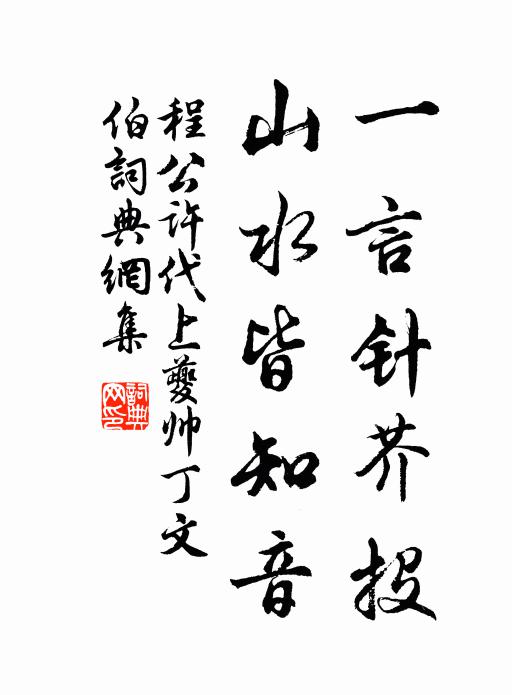 一言针芥投
山水皆知音
程公许代上夔帅丁文
伯詞典網集
詞典网印